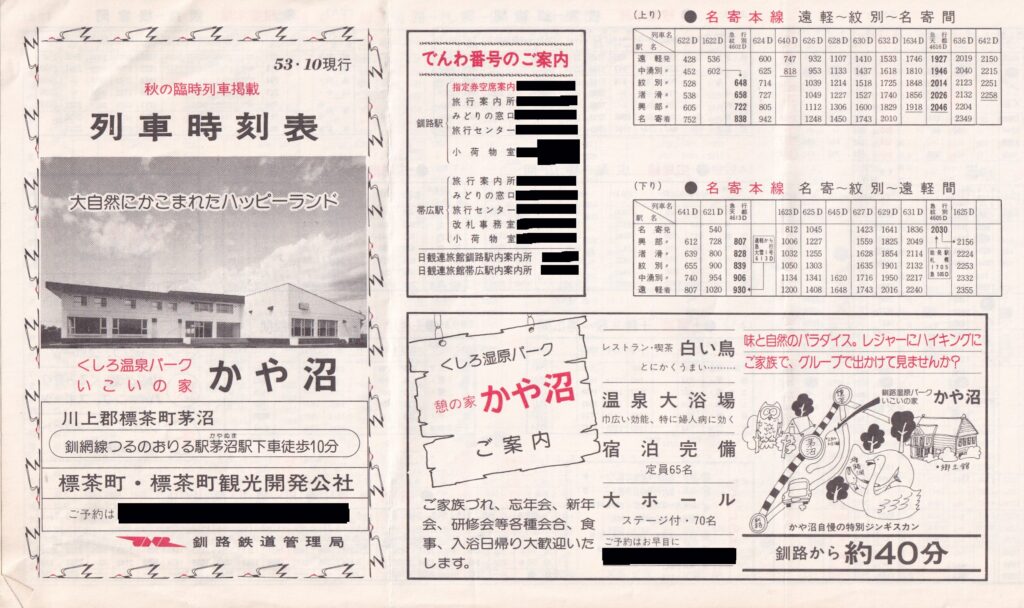 53・10現行
秋の臨時列車掲載
列車時刻表
大自然にかこまれたハッピーランド
くしろ温泉パーク
いこいの家
かや沼
川上郡標茶町茅沼
釧網線つるのおりる駅茅沼駅下車徒歩10分
かやぬま
標茶町・標茶町観光開発公社
ご予約は
釧路鉄道管理局
でんわ番号のご案内
釧路駅
指定券空席案内
旅行案内所
みどりの窓口
旅行センター
小荷物室
帯広駅
旅行案内所
みどりの窓口
旅行センター
改札事務室
小荷物室
日観連旅館釧路駅内案内所
日観連旅館帯広駅内案内所
(上り) ● 名寄本線 遠軽～紋別～名寄間
列車名 駅名 622D 1622D 急行 紋別 4602D 624D 640D 626D 628D 630D 632D 1634D 急行 天都 4616D 636D 642D
遠軽発 428 536 600 747 932 1107 1410 1533 1746 1927 2050 2150
中湧別〃 452 602 625 818 953 1130 1437 1618 1815 1946 2119 2215
紋別〃 528 648 714 1039 1214 1518 1725 1848 2014 2123 2251
渚滑〃 538 658 727 1049 1227 1527 1740 1856 2026 2132 2258
興部〃 605 722 805 1112 1306 1600 1829 1918 2046 2204
名寄着 752 838 942 1248 1450 1743 2010 2349
(下り) ● 名寄本線 名寄～紋別～遠軽間
列車名 駅名 641D 621D 急行 天都 4613D 1623D 625D 645D 627D 629D 631D 急行 紋別 4605D 1625D
名寄発 540 812 1045 1423 1641 1836 2030
興部〃 612 728 807 1006 1227 1559 1825 2049 2156
渚滑〃 639 800 828 1032 1255 1628 1854 2114 2224
紋別〃 655 900 839 1050 1303 1635 1901 2132 2253
中湧別〃 740 954 906 1134 1341 1620 1716 1950 2217 2332
遠軽着 807 1020 930 1200 1408 1648 1743 2016 2240 2355
遠軽から急行大雪1号 613D
始発駅 札幌 1705 急505D
くしろ湿原パーク
憩の家 かや沼
ご案内
ご家族づれ、忘年会、新年
会、研修会等各種会合、食
事、入浴日帰り大歓迎いた
します。
レストラン・喫茶 白い鳥
とにかくうまい………
温泉大浴場
巾広い効能、特に婦人病に効く
宿泊完備
定員65名
大ホール
ステージ付・70名
ご予約はお早目に
味と自然のパラダイス。レジャーにハイキングに
ご家族で、グループで出かけて見ませんか？
釧路湿原パーク
いこいの家 かや沼
標茶
茅沼
釧路
郷土館
かや沼自慢の特別ジンギスカン
釧路から約40分